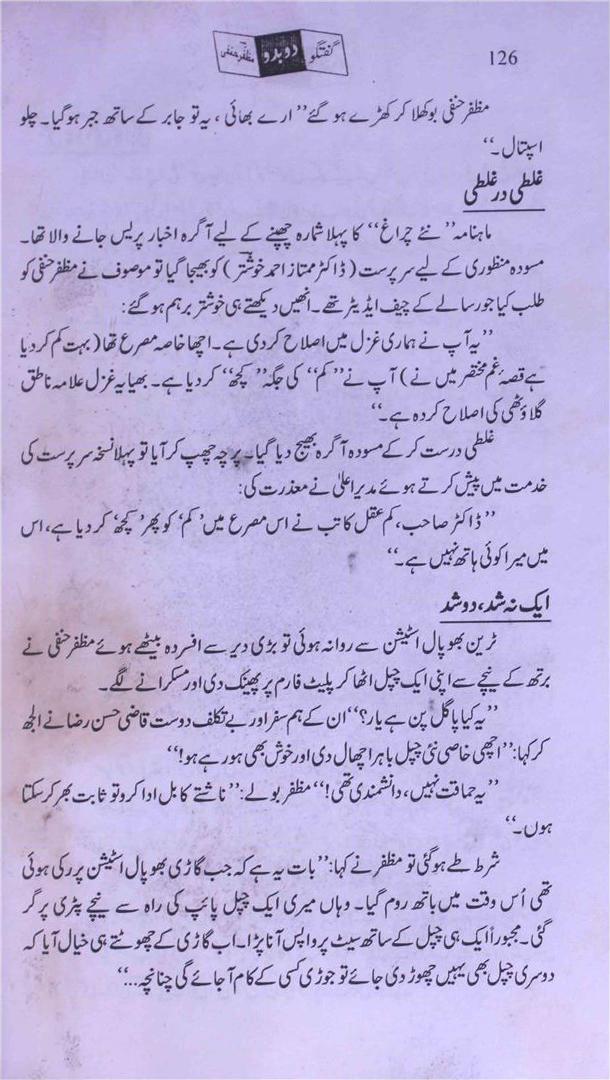 گفتگو دوبدو مظفر حنفی
126
مظفر حنفی بوکھلا کر کھڑے ہو گئے ’’ارے بھائی، یہ تو جابر کے ساتھ جبر ہو گیا۔ چلو
اسپتال۔‘‘
غلطی در غلطی
ماہنامہ ’’نئے چراغ‘‘ کا پہلا شمارہ چھپنے کے لیے آگرہ اخبار پریس جانے والا تھا۔
مسودہ منظوری کے لیے سرپرست (ڈاکٹر ممتاز احمد خوشتر) کو بھیجا گیا تو موصوف نے مظفر حنفی کو
طلب کیا جو رسالے کے چیف ایڈیٹر تھے۔ انھیں دیکھتے ہی خوشتر برہم ہو گئے:
’’یہ آپ نے ہماری غزل میں اصلاح کر دی ہے۔ اچھا خاصہ مصرع تھا (بہت کم کر دیا
ہے قصۂ غم مختصر میں نے) آپ نے ’’کم‘‘ کی جگہ ’’کچھ‘‘ کر دیا ہے۔ بھیا یہ غزل علامہ ناطق
گلاؤٹھی کی اصلاح کردہ ہے۔‘‘
غلطی درست کر کے مسودہ آگرہ بھیج دیا گیا۔ پرچہ چھپ کر آیا تو پہلا نسخہ سرپرست کی
خدمت میں پیش کرتے ہوئے مدیر اعلیٰ نے معذرت کی:
’’ڈاکٹر صاحب، کم عقل کاتب نے اس مصرع میں ’کم‘ کو پھر ’کچھ‘ کر دیا ہے، اس
میں میرا کوئی ہاتھ نہیں ہے۔‘‘
ایک نہ شد، دو شد
ٹرین بھوپال اسٹیشن سے روانہ ہوئی تو بڑی دیر سے افسردہ بیٹھے ہوئے مظفر حنفی نے
برتھ کے نیچے سے اپنی ایک چپل اٹھا کر پلیٹ فارم پر پھینک دی اور مسکرانے لگے۔
’’یہ کیا پاگل پن ہے یار؟‘‘ ان کے ہم سفر اور بے تکلف دوست قاضی حسن رضا نے الجھ
کر کہا: ’’اچھی خاصی نئی چپل باہر اچھال دی اور خوش بھی ہو رہے ہو!‘‘
’’یہ حماقت نہیں، دانشمندی تھی!‘‘ مظفر بولے: ’’ناشتے کا بل ادا کرو تو ثابت بھر کر سکتا
ہوں۔‘‘
شرط طے ہو گئی تو مظفر نے کہا: ’’بات یہ ہے کہ جب گاڑی بھوپال اسٹیشن پر رکی ہوئی
تھی اُس وقت میں باتھ روم گیا۔ وہاں میری ایک چپل پائپ کی راہ سے نیچے پٹری پر گر
گئی۔ مجبوراً ایک ہی چپل کے ساتھ سیٹ پر واپس آنا پڑا۔ اب گاڑی کے چھوٹتے ہی خیال آیا کہ
دوسری چپل بھی یہیں چھوڑ دی جائے تو جوڑی کسی کے کام آ جائے گی چنانچہ...‘‘